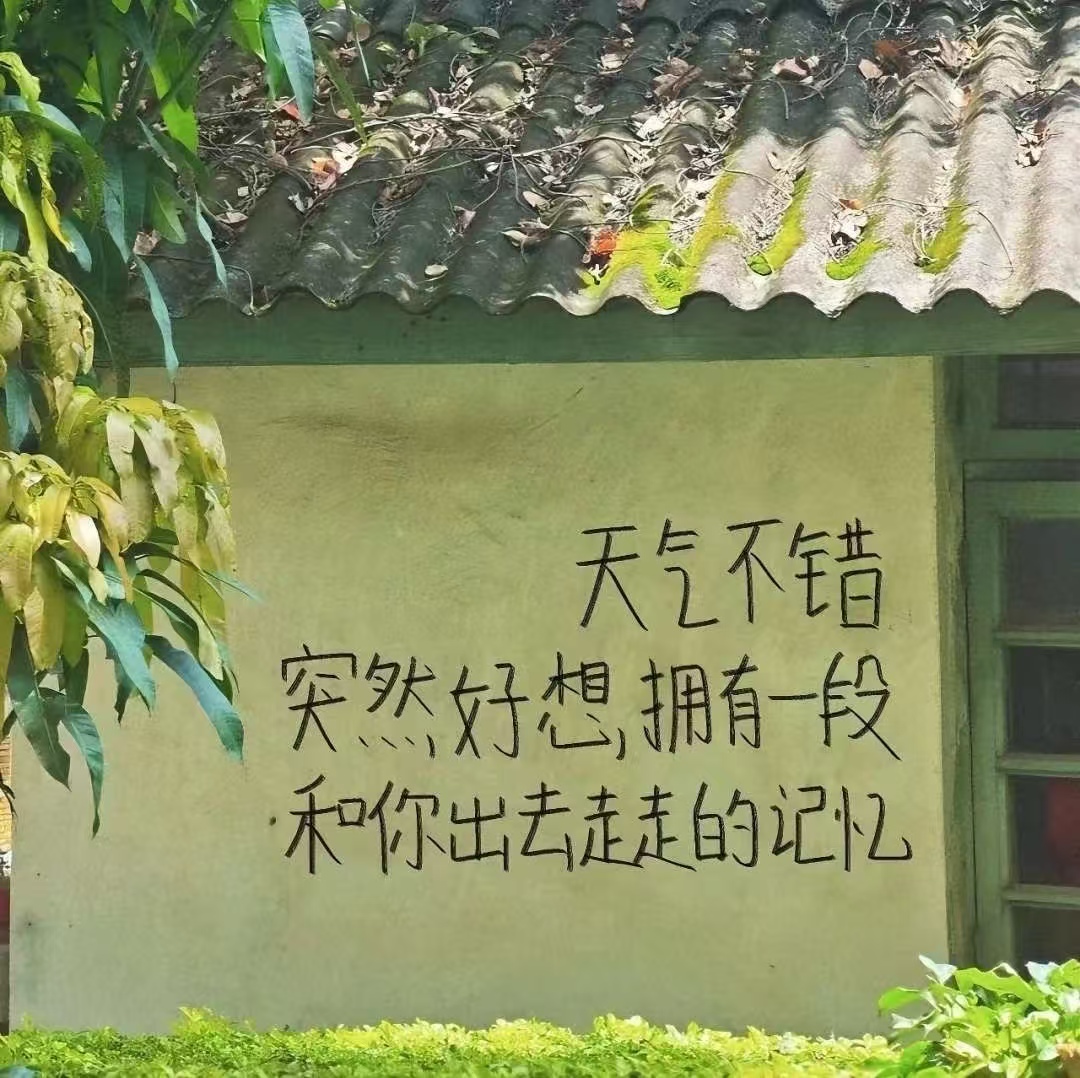 天气不错
突然好想拥有一段
和你出去走走的记忆